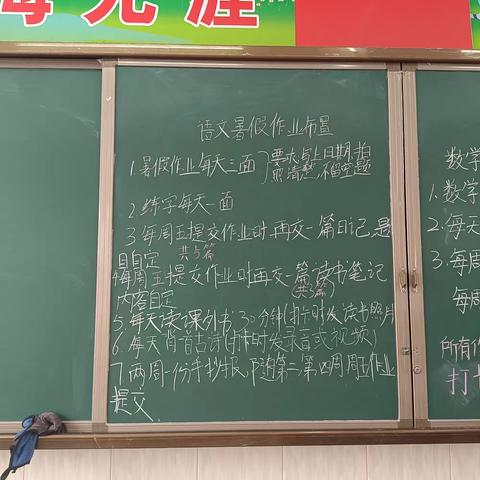 海无涯
语文暑假作业布置
1.暑假作业每天三面}要求写上日期,拍
照清楚,不留空题
2.练字每天一面
3.每周五提交作业时,再交一篇日记,题
目自定
共5篇
4.每周五提交作业时再交一篇读书笔记
内容自定
(共5篇)
5.每天读课外书30分钟(打卡时发读书照片
6.每天背首古诗(打卡时发录音或视频)
7.两周一份手抄报,随第二、第四周周五作业
提交.
数学
1.数学
2.每天
3.每周
每周
所有作
打卡